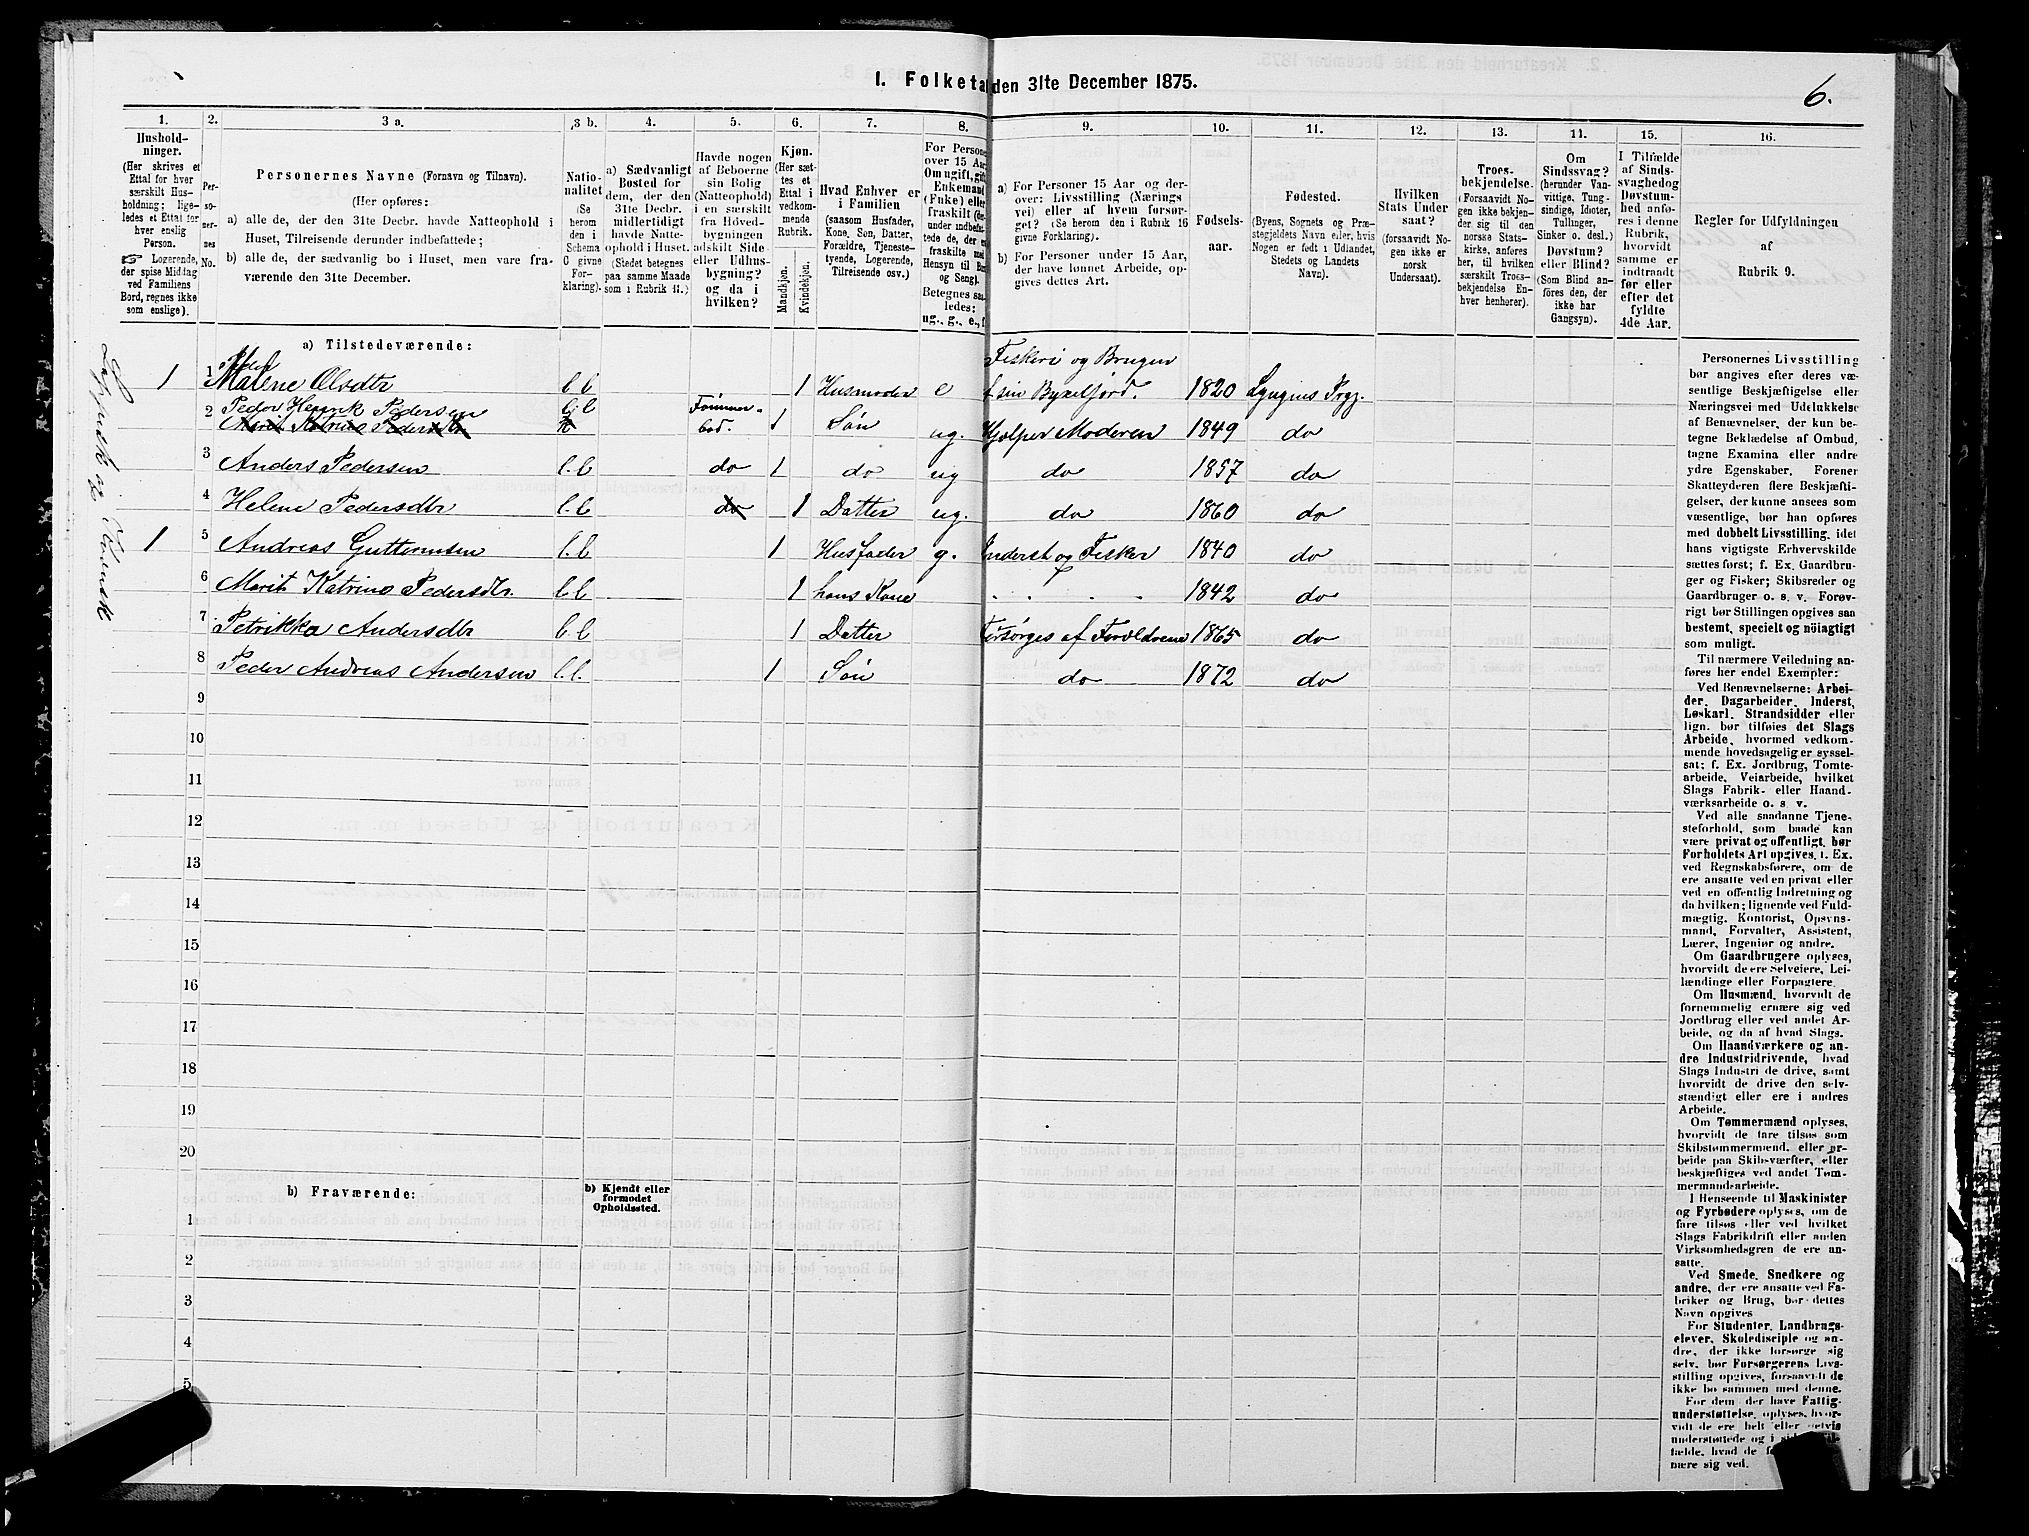 I. Folketa den 31te December 1875.
6.
1. 2. 3 a. 3 b. 4. 5. 6. 7. 8. 9. 10. 11. 12. 13. 11. 15. 16.
Hushold-
ninger.
(Her skrives et
Ettal for hver
særskilt Hus-
holdning; lige-
ledes et Ettal for
hver enslig
Person.
☞ Logerende,
der spise Middag
ved Familiens
Bord, regnes ikke
som enslige).
Per-
so-
ner-
nes
No.
Personernes Navne (Fornavn og Tilnavn).
(Her opføres:
a) alle de, der den 31te Decbr. havde Natteophold i
Huset, Tilreisende derunder indbefattede;
b) alle de, der sædvanlig bo i Huset, men vare fra-
værende den 31te December.
Natio-
nalitet
(Se
herom
den i
Schema
C givne
For-
klaring).
a) Sædvanligt
Bosted for
dem, der den
31te Decbr.
midlertidigt
havde Natte-
ophold i Huset.
(Stedet betegnes
paa samme Maade
som i Rubrik 11.)
Havde nogen
af Beboerne
sin Bolig
(Natteophold)
i en særskilt
fra Hoved-
bygningen
adskilt Side-
eller Udhus-
bygning?
og da i
hvilken?
Kjøn.
(Her sæt-
tes et
Ettal i
vedkom-
mende
Rubrik.
Mandkjøn.
Kvindekjøn.
Hvad Enhver er
i Familien
(saasom Husfader,
Kone, Søn, Datter,
Forældre, Tjeneste-
tyende, Logerende,
Tilreisende osv.)
For Persone
over 15 Aar
Om ugift, gift
Enkemand
(Enke) eller
fraskilt (de
under indbefat-
tede de, der e
fraskilte med
Hensyn til Bo
og Seng).
Betegnes saa-
ledes:
ug., g., e., f
a) For Personer 15 Aar og der-
over: Livsstilling (Nærings
vei) eller af hvem forsør-
get? (Se herom de i Rubrik 16
givne Forklaring).
b) For Personer under 15 Aar,
der have lønnet Arbeide, op-
gives dettes Art.
Fødsels-
aar.
Fødested.
(Byens, Sognets og Præ-
stegjeldets Navn eller, hvis
Nogen er født i Udlandet,
Stedets og Landets
Navn).
Hvilken
Stats Under
saat?
(forsaavidt No-
gen ikke er
norsk
Undersaat).
Troes-
bekjendelse.
(Forsaavidt No-
gen ikke bekjen-
der sig til den
norske Stats-
kirke, anføres
her, til hvilken
særskilt Troes-
bekjendelse En-
hver henhører).
Om
Sindssvag?
(herunder Van-
vittige, Tung-
sindige, Idioter,
Tullinger,
Sinker o. desl.)
Døvstum?
eller Blind?
(Som Blind an-
føres den, der
ikke har
Gangsyn).
I Tilfælde
af Sinds-
svaghed og
Døvstum-
hed anfø-
res i denne
Rubrik,
hvorvidt
samme er
indtraadt
før eller
efter det
fyldte
4de Aar.
Regler for Udfyldningen
af
Rubrik 9.
a) Tilstedeværende:
1 1 Malene Olsdtr l. l 1 Husmoder e Fiskeri og Brugen
1820 Lyngens Prgj.
2 Peder Henrik Pedersen l. l 1 Søn ug. Hjælper Moderen 1849 do
Marit Katrine Pedersdtr
3 Anders Pedersen l. l do 1 do ug do 1857 do
4 Helene Pedersdtr l. l do 1 Datter ug. do 1860 do
1 5 Andreas Guttormsen l. l 1 Husfader g. Inderst og Fisker 1840 do
6 Marit Katrine Pedersdtr. l. l 1 hans Kone 1842 do
7 Petrikka Andersdtr l. l 1 Datter Forsørges af Forældrene 1865 do
8 Peder Andreas Andersen l. l. 1 Søn do 1872 do
9
10
11
12
13
14
15
16
17
18
19
20
b) Fraværende:
b) Kjendt eller
formodet
Opholdssted.
1
2
3
4
5
Personernes Livsstilling
bør angives efter deres væ-
sentlige Beskjæftigelse eller
Næringsvei med Udelukkelse
af Benævnelser, der kun be-
tegne Beklædelse af Ombud,
tagne Examina eller andre
ydre Egenskaber. Forener
Skatteyderen flere Beskjæfti-
gelser, der kunne ansees som
væsentlige, bør han opføres
med dobbelt Livsstilling, idet
hans vigtigste Erhvervskilde
sættes først; f. Ex. Gaardbru-
ger og Fisker; Skibsreder og
Gaardbruger o. s. v. Forøv-
rigt bør Stillingen opgives saa
bestemt, specielt og nöiagtigt
som muligt.
Til nærmere Veiledning an-
føres her endel Exempler:
Ved Benævnelserne: Arbei-
der, Dagarbeider, Inderst,
Løskarl, Strandsidder eller
lign. bør tilføies det Slags
Arbeide, hvormed vedkom-
mende hovedsagelig er syssel-
sat; f. Ex. Jordbrug, Tomte-
arbeide, Veiarbeide, hvilket
Slags Fabrik- eller Haand-
værksarbeide o. s. v.
Ved alle saadanne Tjene-
steforhold, som baade kan
være privat og offentligt, bør
Forholdets Art opgives, f. Ex.
ved Regnskabsførere, om de
ere ansatte ved en privat eller
ved en offentlig Indretning og
da hvilken; lignende ved Fuld-
mægtig, Kontorist, Opsyns-
mand, Forvalter, Assistent,
Lærer, Ingeniør og andre.
Om Gaardbrugere oplyses,
hvorvidt de ere Selveiere, Lei-
lændinge eller Forpagtere.
Om Husmænd, hvorvidt de
fornemmelig ernære sig ved
Jordbrug eller ved andet Ar-
beide, og da af hvad Slags.
Om Haandværkere og an-
dre Industridrivende, hvad
Slags Industri de drive, samt
hvorvidt de drive den selv-
stændigt eller ere i andres
Arbeide.
Om Tømmermænd oplyses,
hvorvidt de fare tilsøs som
Skibstømmermend, eller ar-
beide paa Skibsværfter, eller
beskjæftiges ved andet Tøm-
mermandsarbeide.
I Henseende til Maskinister
og Fyrbødere oplyses, om de
fare tilsøs eller ved hvilket
Slags Fabrikdrift eller anden
Virksomhedsgren de ere an-
satte.
Ved Smede, Snedkere og
andre, der ere ansatte ved Fa-
briker og Brug, bør dettes
Navn opgives
For Studenter, Landbrugs-
elever, Skoledisciple og an-
dre, der ikke forsørge sig
selv, bør Forsørgerens Livs-
stilling opgives, forsaavidt de
ikke bo sammen med denne.
For dem, der have Fattig-
understøttelse, oplyses, hvor-
vidt de ere helt eller delvis
understøttede og i
fælde, hvad de
nære sig ved.